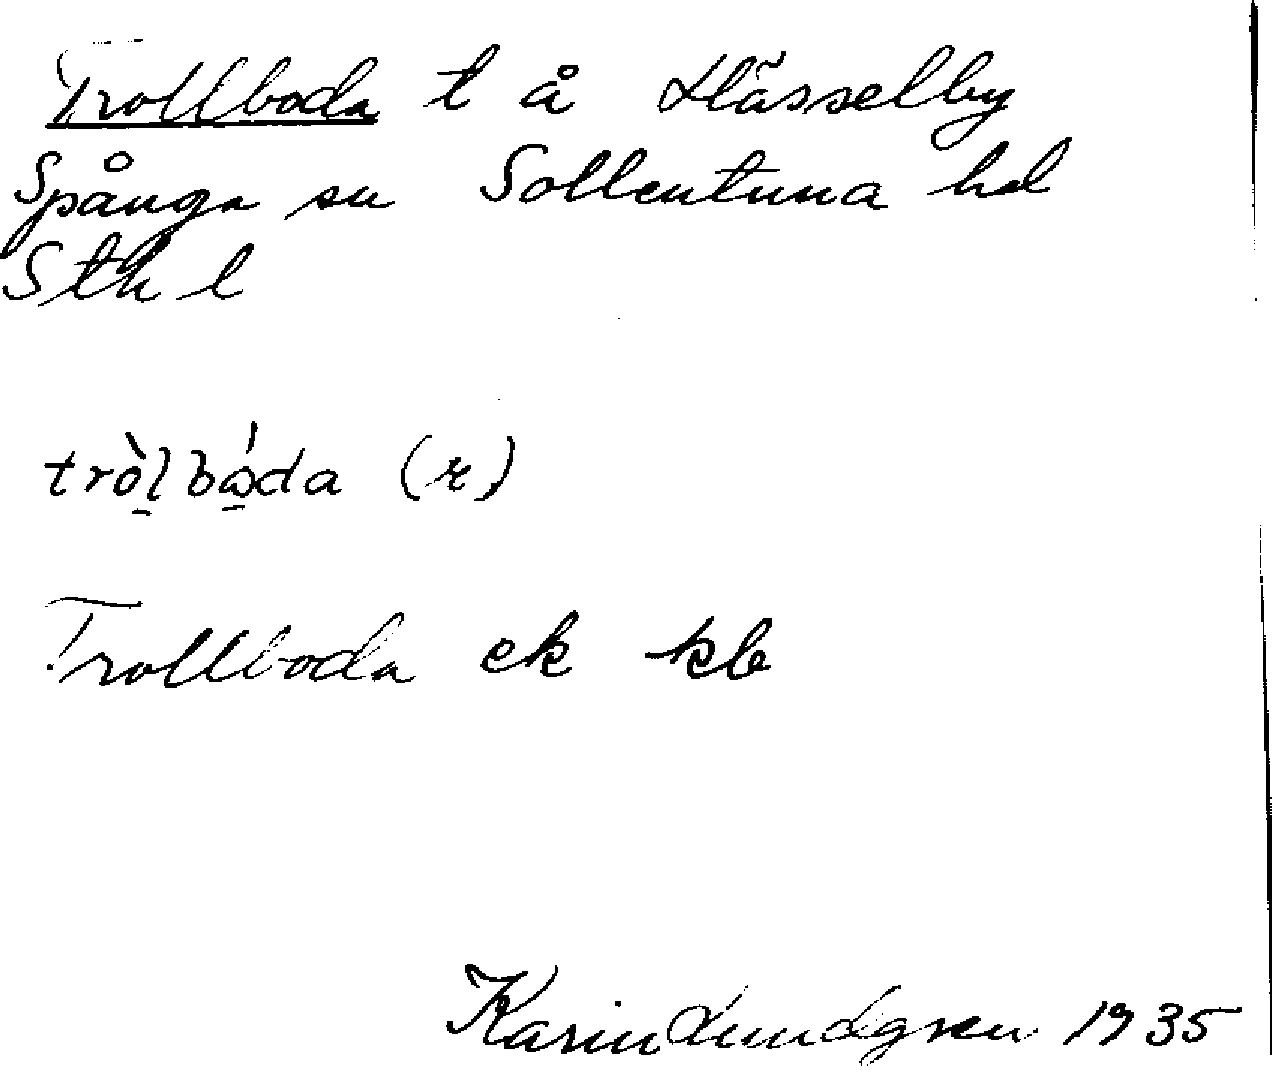 Trollboda t å Hässelby
Spånga sn Sollentuna hd
Sth l
trò̱lbǻ̱da (r)
Trollboda ek kb
Karin Lundgren 1935